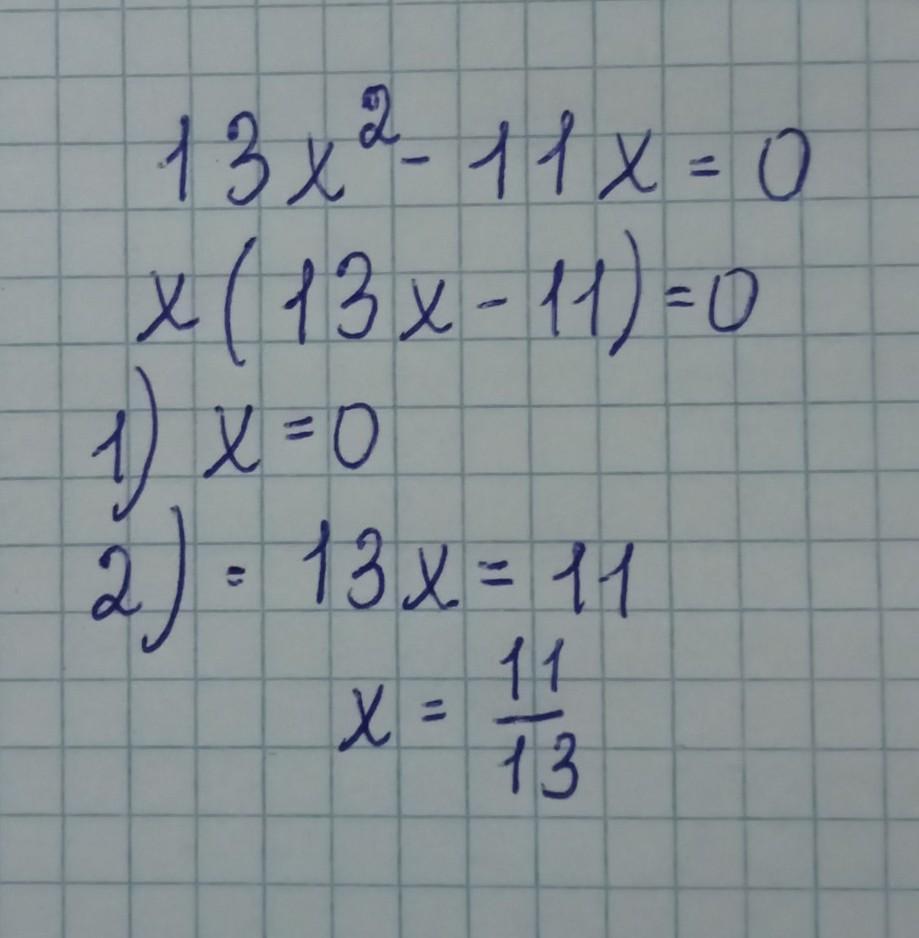 13x² - 11x = 0
x(13x - 11) = 0
1) x = 0
2) = 13x = 11
x = 11/13